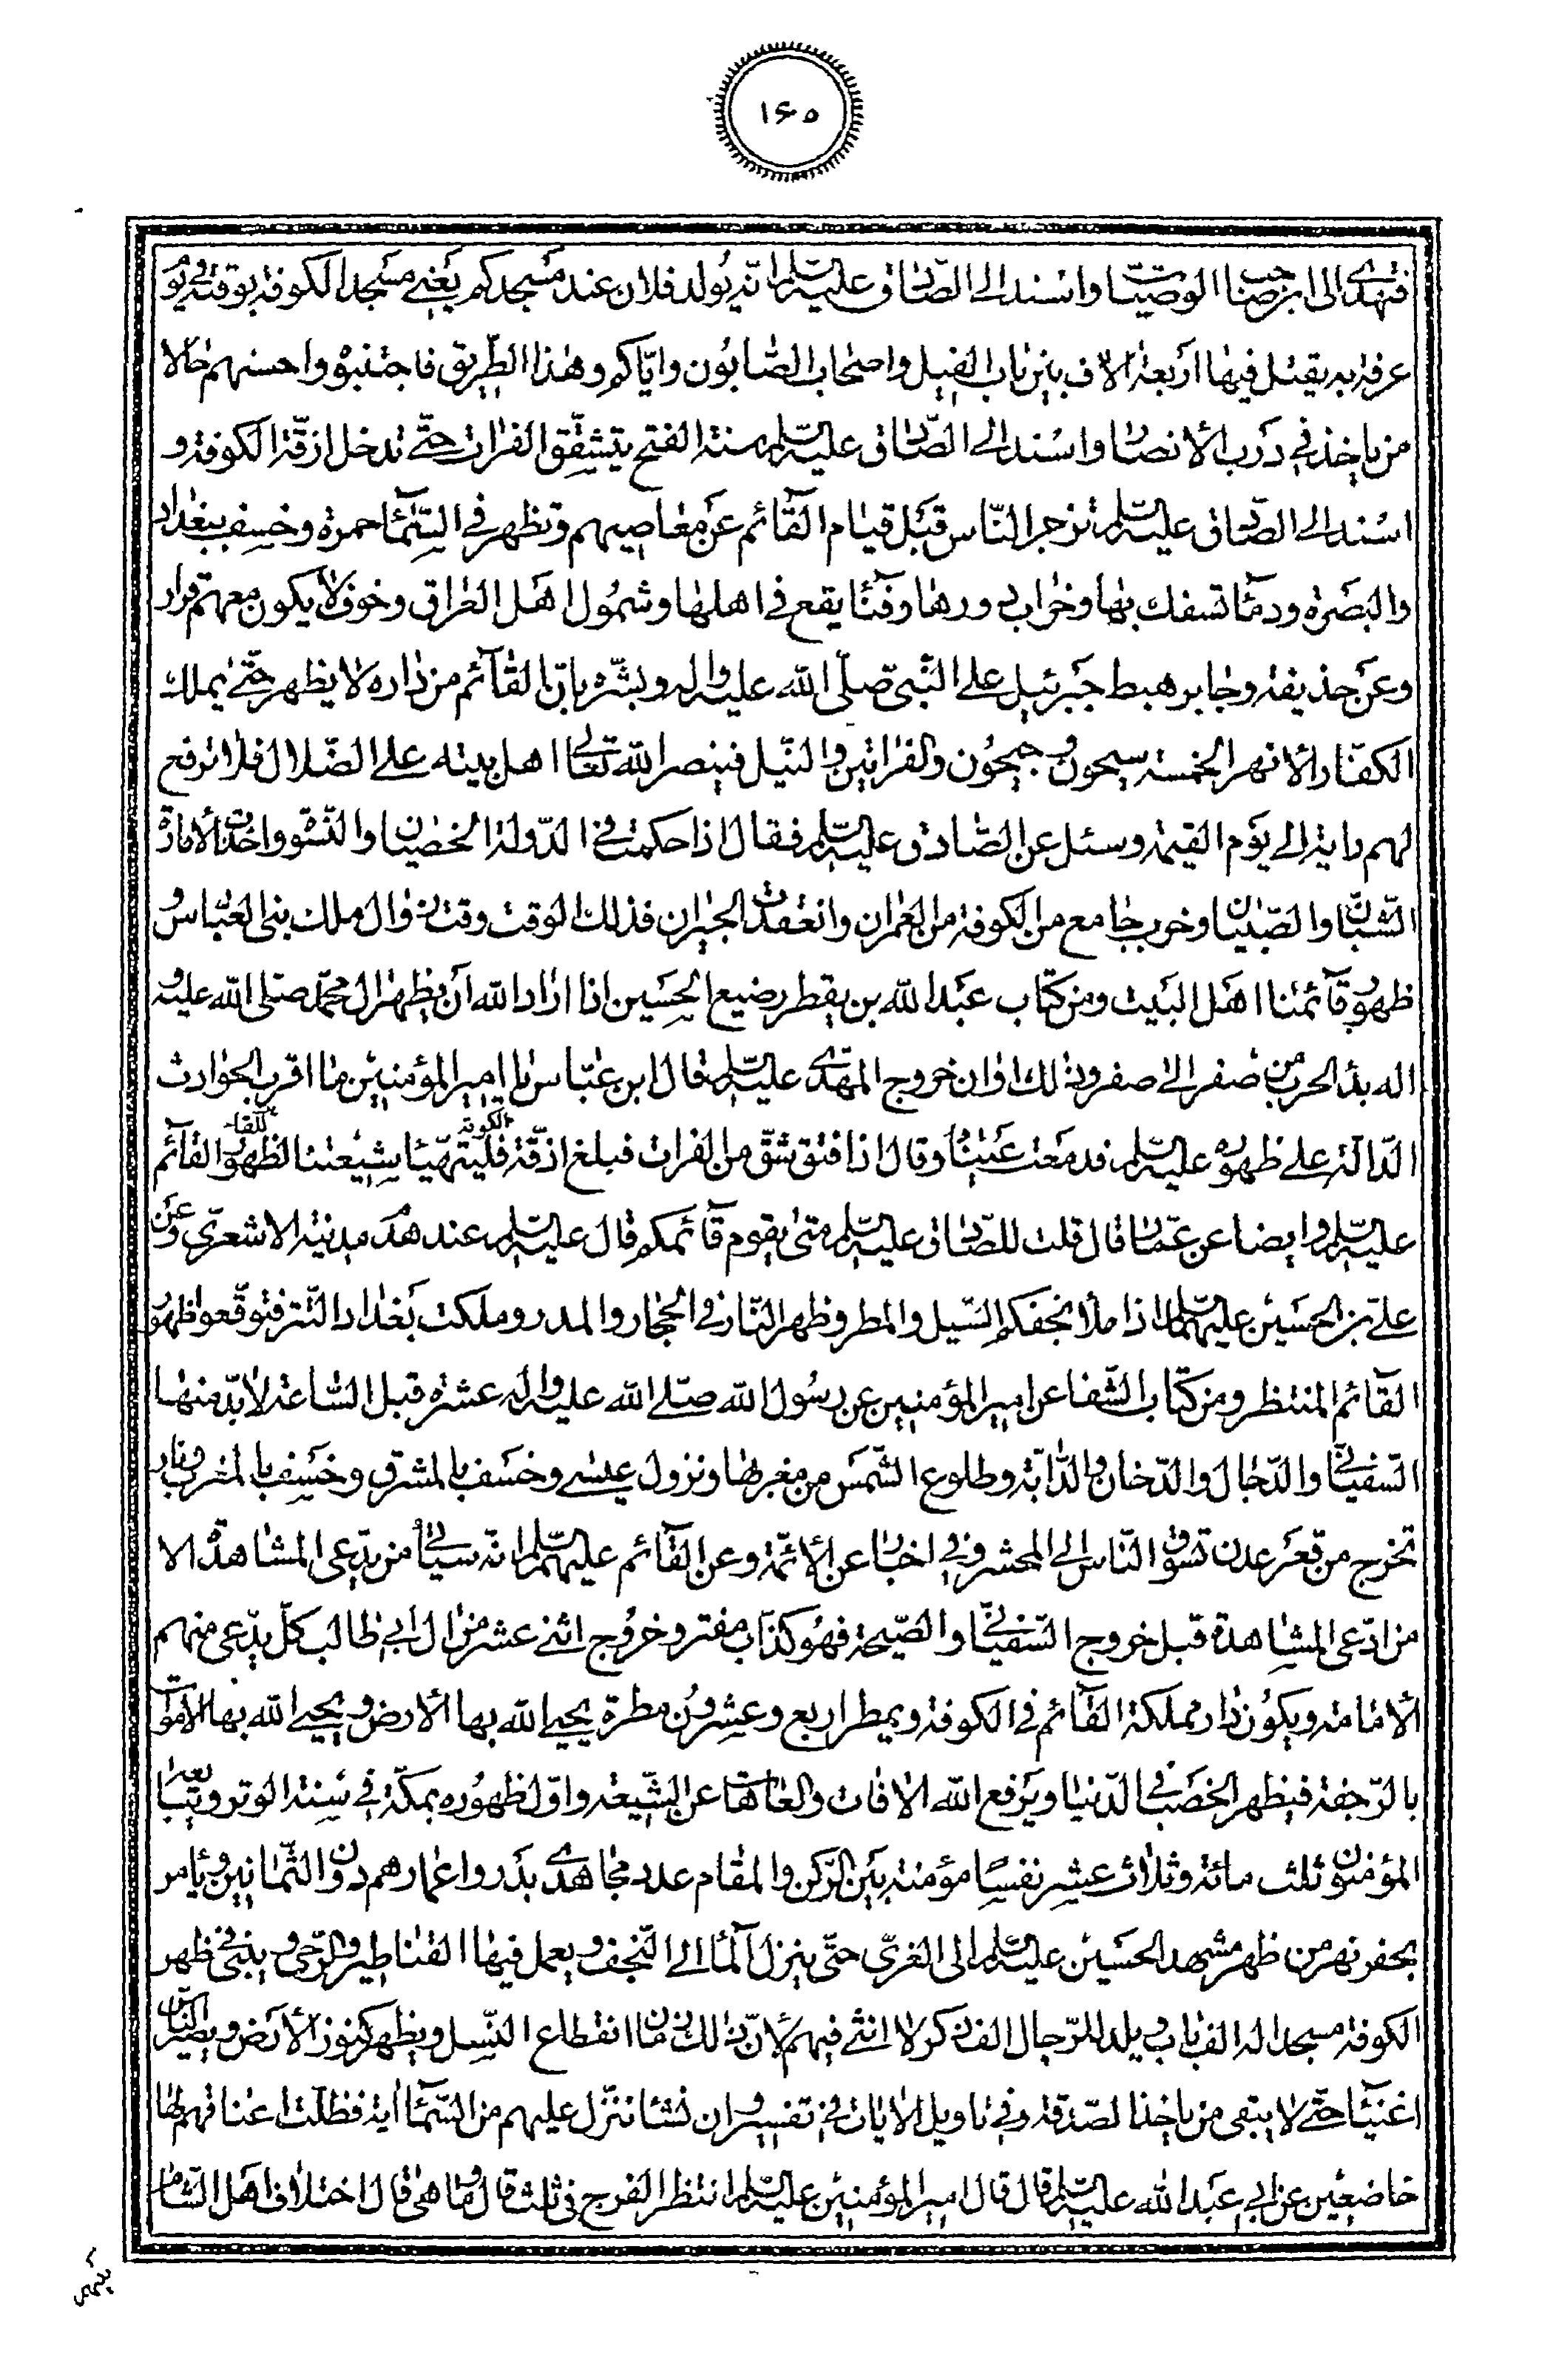 ١۶٥
فتهدى الى ابن صاحب الوصيات واسند الى الصادق عليه السلم انه يولد فلان عند مسجدكم يعنى مسجد الكوفة بوقته فى يو
عرفة به يقتل فيها اربعة الاف بين باب الفيل واصحاب الصابون واياكم وهذا الطريق فاجتنبوه واحسنهم حالا
من ياخذ فى درب الأنصار واسند الى الصادق عليه السلم سنة الفتح يتشقق الفرات حتى تدخل ازقة الكوفة و
اسند الى الصادق عليه السلم تزجر الناس قبل قيام القائم عن معاصيهم وتظهر فى السماء حمرة وخسف ببغداد
والبصرة ودماء تسفك بها وخراب دورها وفناء يقع فى اهلها وشمول اهل العراق وخوف لا يكون معهم قرار
وعن حذيفة وجابر هبط جبرئيل على النبى صلى الله عليه واله وبشره بان القائم من داره لا يظهر حتى يملك
الكفار الأنهر الخمسة سيحون وجيحون والفراتين والنيل فينصر الله تعالى اهل بيته على الضلال فلا ترفع
لهم راية الى يوم القيمة وسئل عن الصادق عليه السلم فقال اذا حكمت فى الدولة الخصيان والنسوة واخذت الأمارة
الشبان والصبيان وخرب جامع من الكوفة من العمران وانعقدت الجيران فذلك الوقت وقت زوال ملك بنى العباس و
ظهور قائمنا اهل البيت ومن كتاب عبد الله بن يقطر رضيع الحسين اذا اراد الله ان يظهر ال محمد صلى الله عليه و
اله بدا الحرب من صفر الى صفر وذلك اوان خروج المهدى عليه السلم قال ابن عباس يا امير المؤمنين ما اقرب الحوادث
الدالة على ظهوره عليه السلم فدمعت عيناه وقال اذا فتق شق من الفرات فبلغ ازقة الكوفة فليتهيأ شيعتنا للقاء لظهور القائم
عليه السلم وايضا عن عمار قال قلت للصادق عليه السلم متى يقوم قائمكم قال عليه السلم عند هدم مدينة الاشعرى وعن
على بن الحسين عليهما السلم اذا ملأ نجفكم السيل والمطر وظهر النار فى الحجار والمدر وملكت بغداد التتر فتوقعوا ظهور
القائم المنتظر ومن كتاب الشفا عن امير المؤمنين عن رسول الله صلى الله عليه واله عشرة قبل الساعة لا بد منها
السفيانى والدجال والدخان والدابة وطلوع الشمس من مغربها ونزول عيسى وخسف بالمشرق وخسف بالمغرب ونار
تخرج من قعر عدن تسوق الناس الى المحشر وفى اخبار عن الأئمة وعن القائم عليهم السلم انه سيأتى من يدعى المشاهدة الا
من ادعى المشاهدة قبل خروج السفيانى والصيحة فهو كذاب مفتر وخروج اثنى عشر من ال ابى طالب كل يدعى منهم
الأمامة ويكون دار مملكة القائم فى الكوفة ويمطر اربع وعشرون مطرة يحيى الله بها الأرض ويحيى الله بها الاموات
بالرجفة فيظهر الخصب فى الدنيا ويرفع الله الافات والعاهات عن الشيعة واول ظهوره بمكة فى سنة الوتر ويتبعه
المؤمنون ثلث مائة وثلاث عشر نفسا مؤمنة بين الركن والمقام عدد مجاهدى بدر واعمارهم دون الثمانين ويأمر
بحفر نهر من ظهر مشهد الحسين عليه السلم الى الغرى حتى ينزل الماء الى النجف ويعمل فيها القناطير والرحى ويبنى فى ظهر
الكوفة مسجدا له الف باب ويلد الرجال الف ذكر لا انثى فيهم لأن ذلك زمان انقطاع النسل ويظهر كنوز الأرض ويصير الناس
اغنياء حتى لا يبقى من ياخذ الصدقة وفى تاويل الايات فى تفسير وان نشا ننزل عليهم من السماء اية فظلت اعناقهم لها
خاضعين عن ابى عبد الله عليه السلم قال قال امير المؤمنين عليه السلم انتظر الفرج فى ثلث قال وما هى قال اختلاف اهل الشام